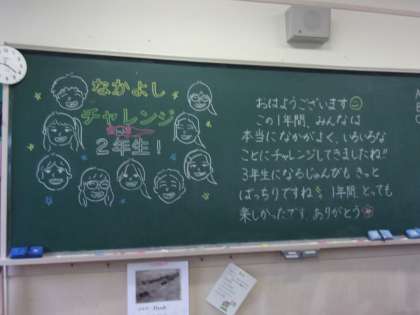 なかよし
チャレンジ
2年生!
おはようございます
この1年間、みんなは
本当になかがよく、いろいろな
ことにチャレンジしてきましたね!!
3年生になるじゅんびも きっと
ばっちりですね。1年間、とっても
楽しかったです。ありがとう